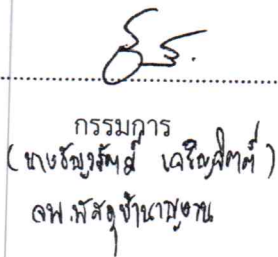 กรรมการ
(นางธัญวรัตน์ เจริญจิตต์)
จพ.พัสดุชำนาญงาน